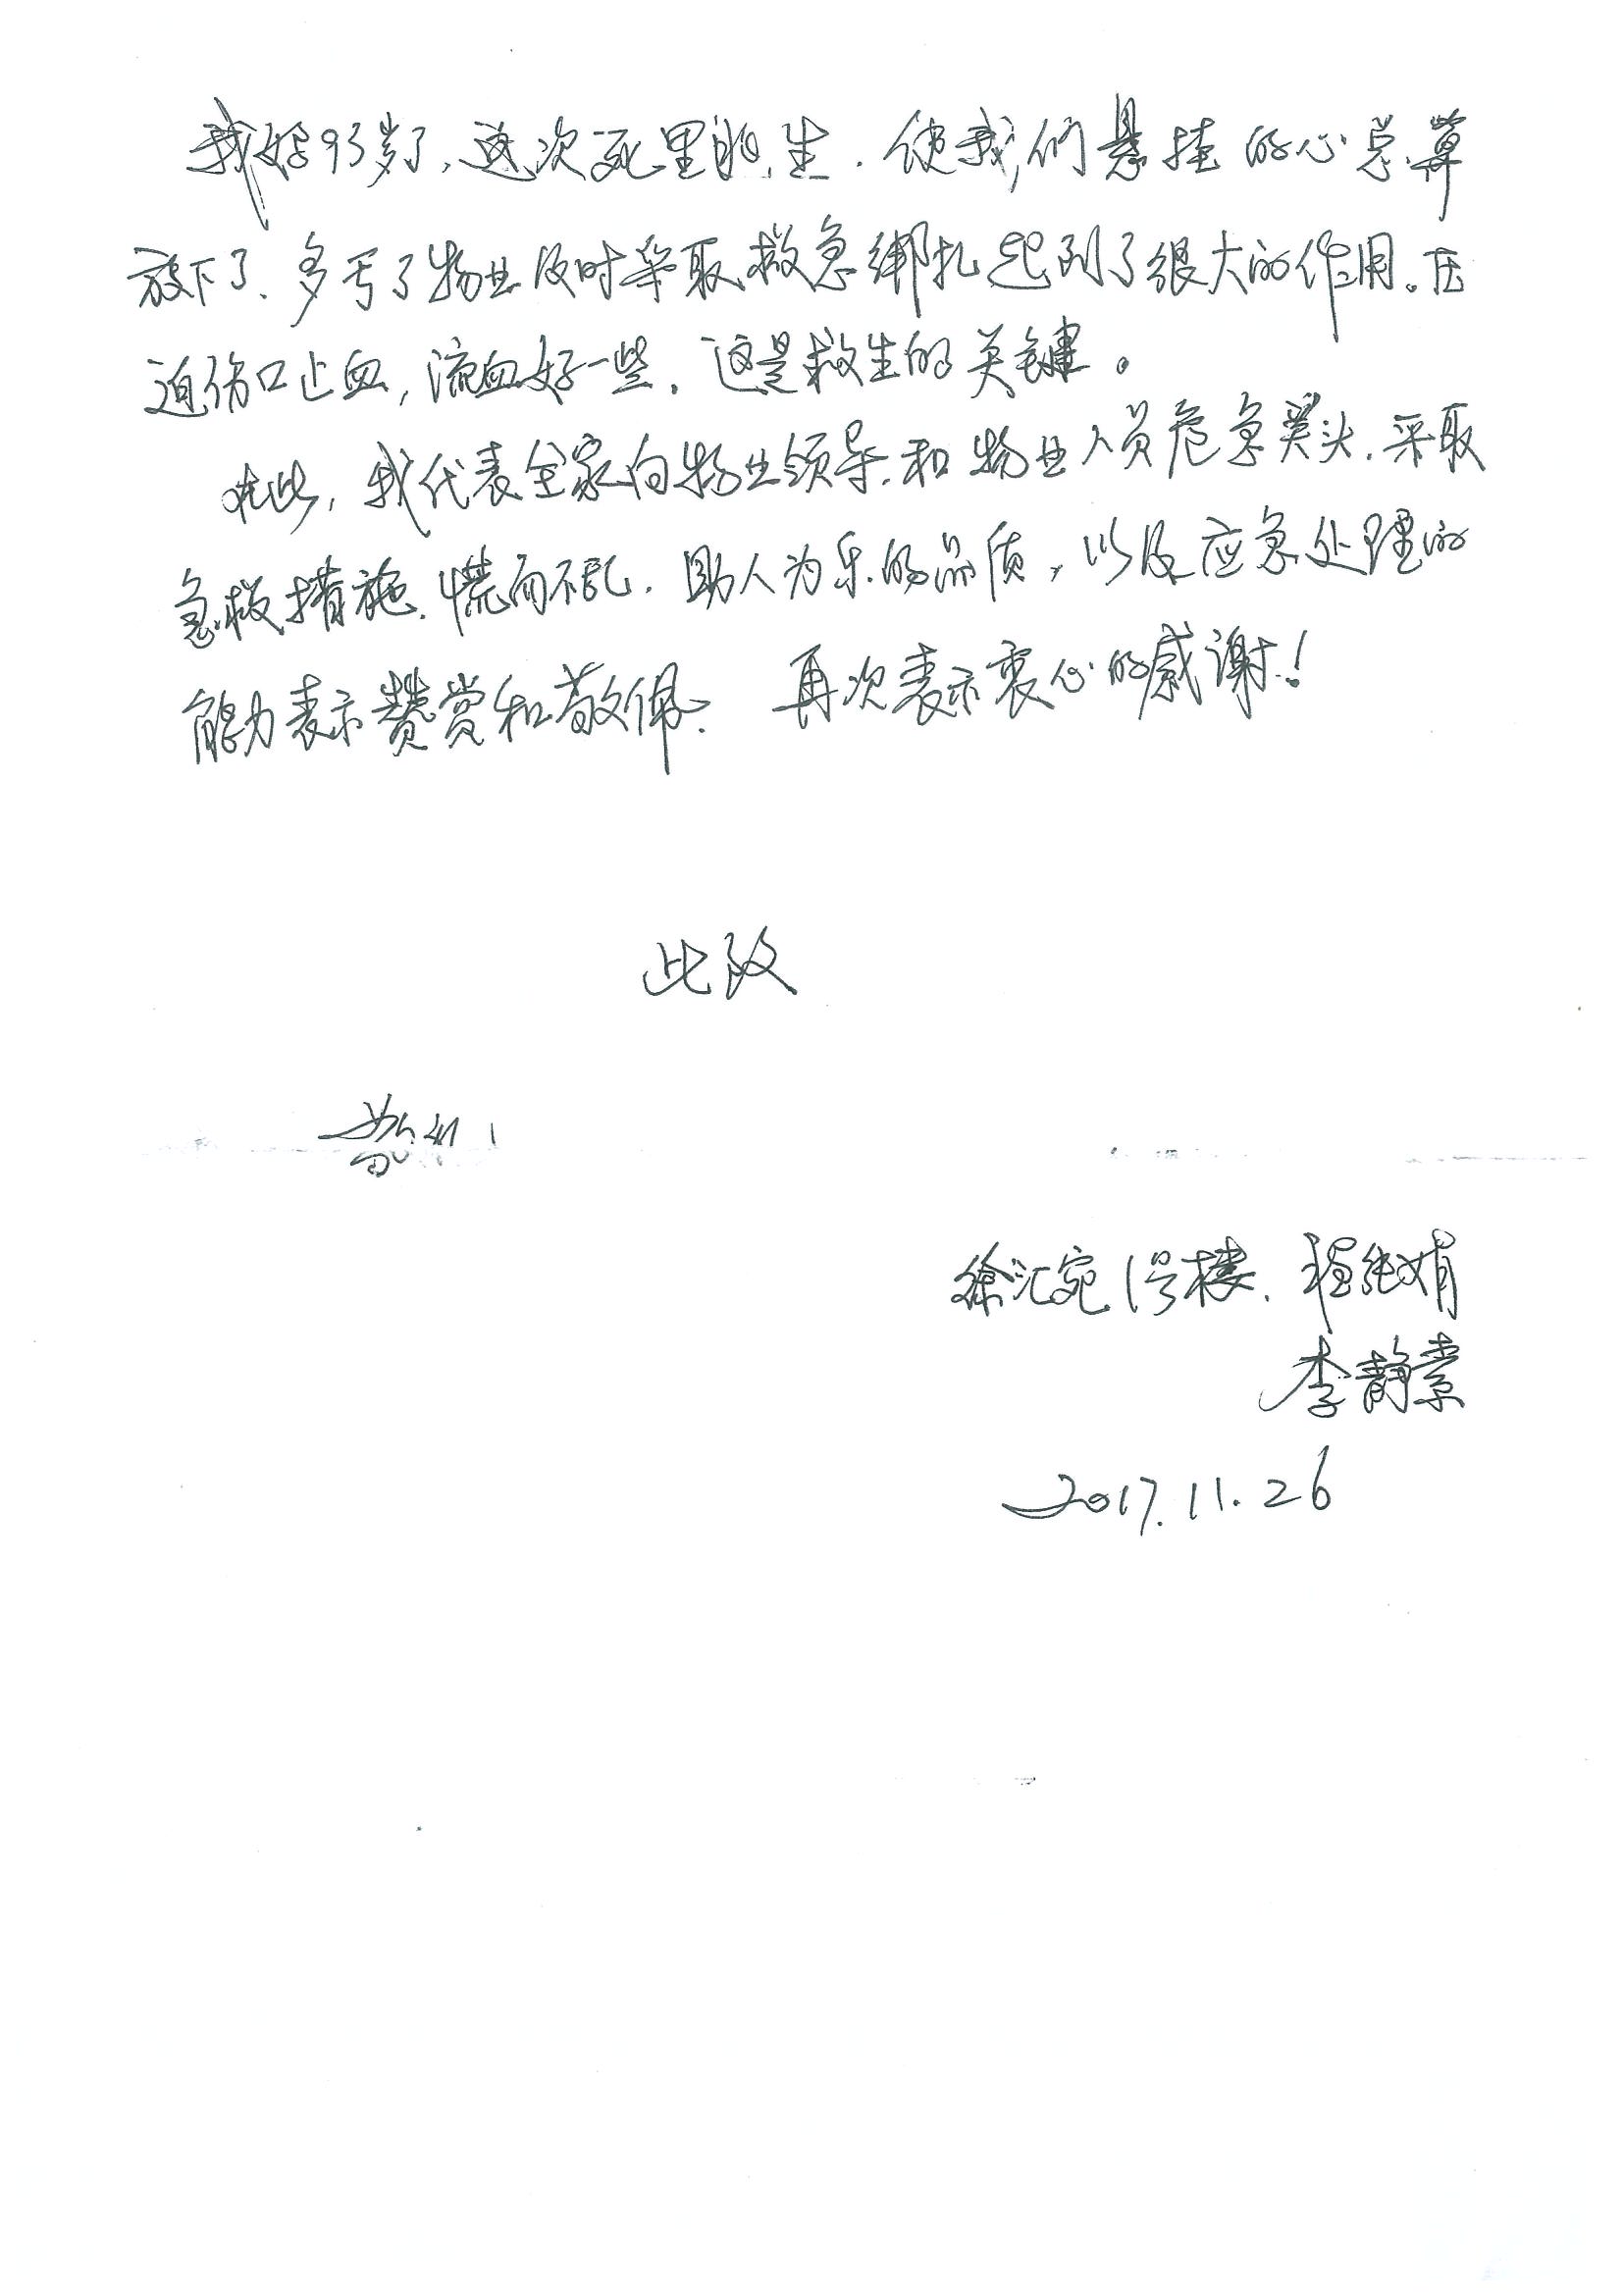 我妈93岁了、这次死里逃生．使我们悬挂的心总算
放下了、多亏了物业及时采取救急绑扎起到了很大的作用。压
迫伤口止血，流血好一些．这是救生的关键。
在此，我代表全家向物业领导．和物业人员危急关头．采取
急救措施．慌而不乱．助人为乐的品质，以及应急处理的
能力表示赞赏和敬佩．再次表示衷心的感谢！
此致
敬礼！
徐汇宛1号楼．程继娟
李静素
2017.11.26